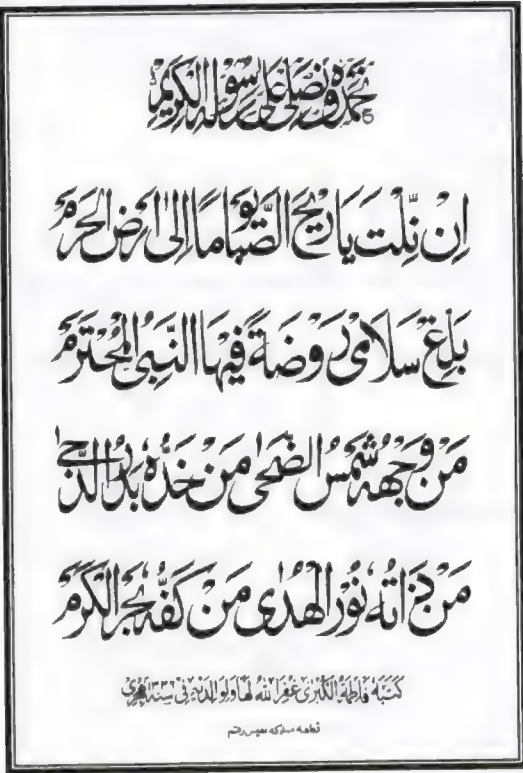 نحمده و نصلی علی رسوله الکریم
اِنْ نِّلْتَ یَا رِیْحَ الصَّبَا یَوْمًا اِلٰی اَرْضِ الْحَرَمِ
بَلِّغْ سَلَامِیْ رَوْضَةً فِیْهَا النَّبِیُّ الْمُحْتَرَمْ
مَنْ وَجْهُهٗ شَمْسُ الضُّحٰی مَنْ خَدُّهٗ بَدْرُ الدُّجٰی
مَنْ ذَاتُهٗ نُوْرُ الْهُدٰی مَنْ کَفُّهٗ بَحْرُ الْکَرَمْ
کتبهٗ فاطمة الکبریٰ غفر الله لها ولوالدیه فی سنة هجری